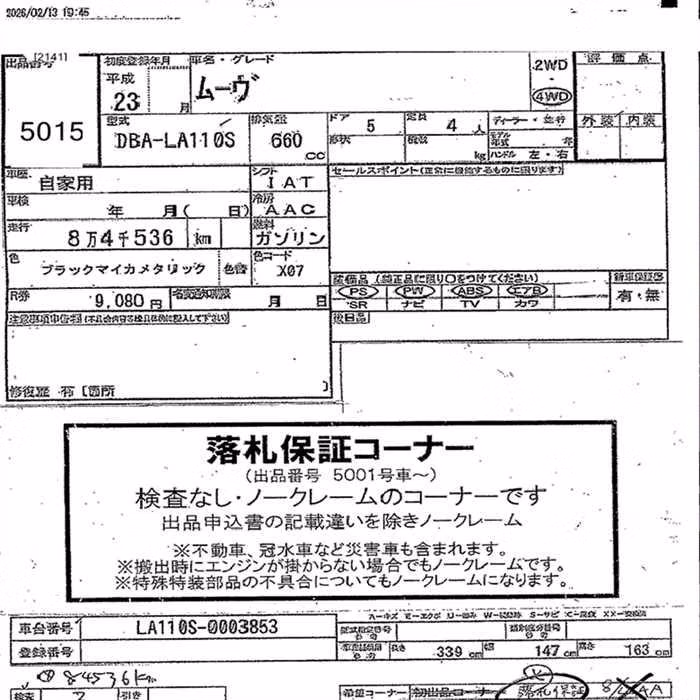 2026/02/13 19:45
[2141]
出品番号 初度登録年月 車名・グレード 2WD 評価点
平成 ムーヴ ・
23 月 4WD
5015 型式 排気量 ドア 5 定員 4 人 ディーラー・並行 外装 内装
DBA-LA110S 660 cc 形状 積載 kg モデル年式 年
ハンドル 左・右
車歴 自家用 シフト IAT セールスポイント(正常に機能するものに限ります)
車検 年 月( 日) 冷房 AAC
走行 8万4千536 km 燃料 ガソリン
色 ブラックマイカメタリック 色替 色コード X07
装備品(純正品に限り○をつけてください) 新車保証書
R券 9,080円 月 日 PS PW ABS エアB 有・無
SR ナビ TV カワ
注意事項申告料(不具合内容を具体的に記入して下さい) 後日品
修復歴 有 [箇所 ]
落札保証コーナー
(出品番号 5001号車〜)
検査なし・ノークレームのコーナーです
出品申込書の記載違いを除きノークレーム
※不動車、冠水車など災害車も含まれます。
※搬出時にエンジンが掛からない場合でもノークレームです。
※特殊特装部品の不具合についてもノークレームになります。
車台番号 LA110S-0003853 型式指定番号 類別区分番号
登録番号 長さ 339 cm 幅 147 cm 高さ 163 cm
84536km
希望コーナー 初出品コーナー 落札保証